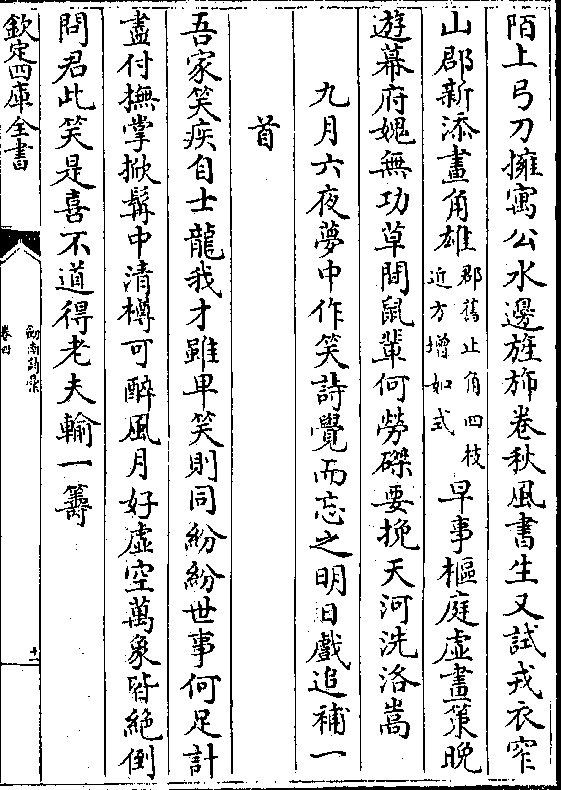 陌上弓刀擁寓公水邊旌斾卷秋風書生又試戎衣窄
山郡新添畫角雄郡舊止角四枝近方增如式早事樞庭虛畫策晚
遊幕府媿無功草間鼠輩何勞磔要挽天河洗洛嵩
九月六夜夢中作笑詩覺而忘之明日戲追補一
首
吾家笑疾自士龍我才雖卑笑則同紛紛世事何足計
盡付撫掌掀髯中清樽可醉風月好虛空萬象皆絶倒
問君此笑是喜不道得老夫輸一籌
欽定四庫全書
劒南詩藁
卷四
十一